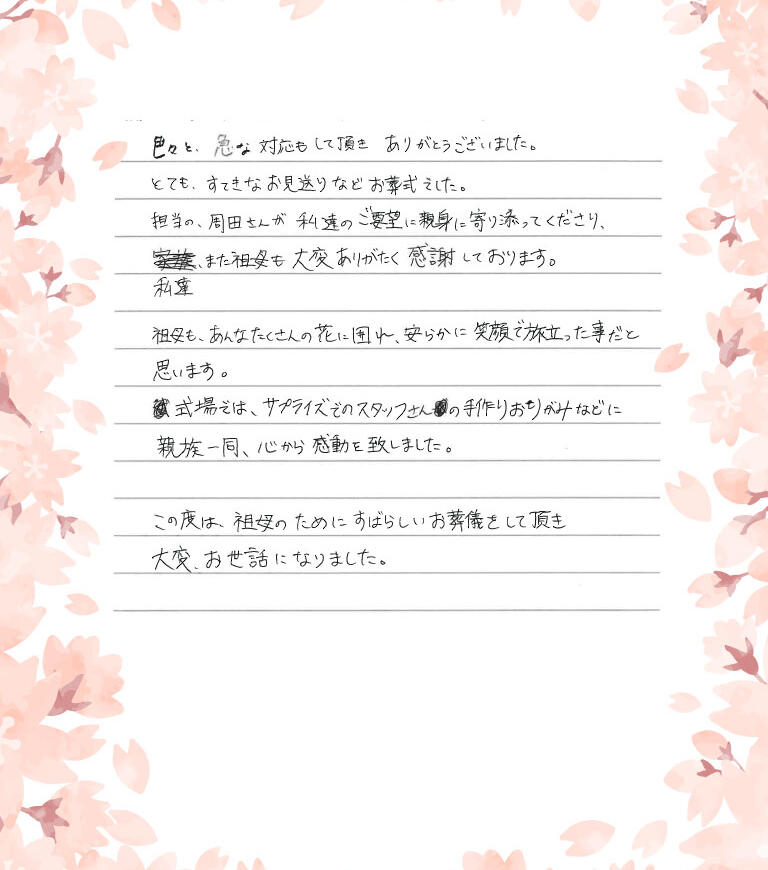 色々と、急な対応もして頂き ありがとうございました。
とても、すてきなお見送りなどお葬式でした。
担当の、周田さんが 私達のご要望に親身に寄り添ってくださり、
家族、また祖母も 大変ありがたく 感謝しております。
私達
祖母も、あんなたくさんの花に囲れ、安らかに 笑顔で旅立った事だと
思います。
式場では、サプライズでのスタッフさんの手作りおりがみなどに
親族一同、心から 感動を致しました。
この度は、祖母のために すばらしいお葬儀をして頂き
大変、お世話になりました。